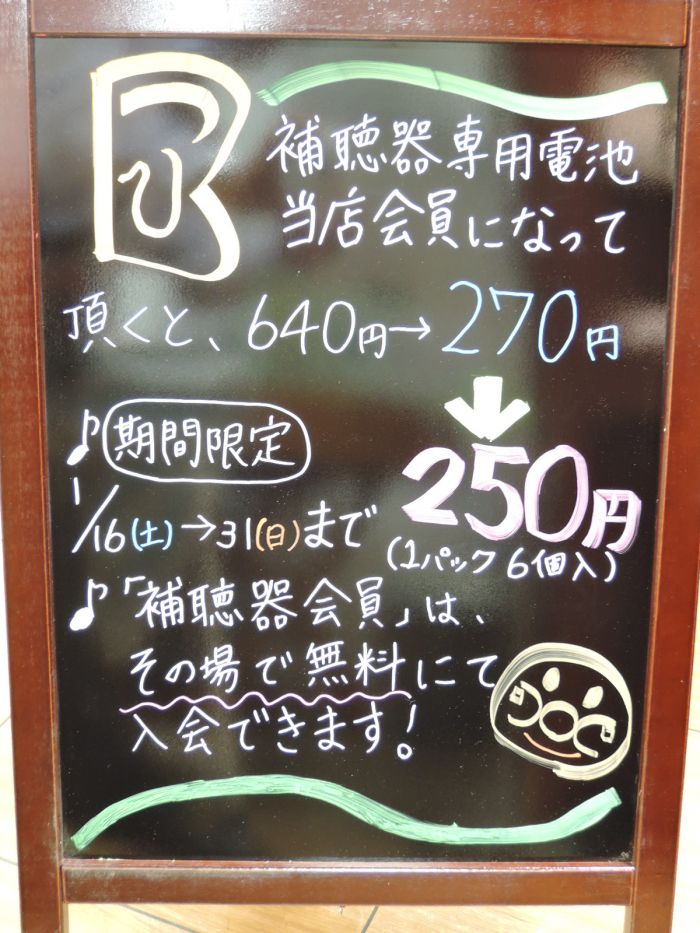 補聴器専用電池
当店会員になって
頂くと、640円→270円
250円
(1パック6個入)
♪期間限定
1/16(土)→31(日)まで
♪「補聴器会員」は、
その場で無料にて
入会できます!